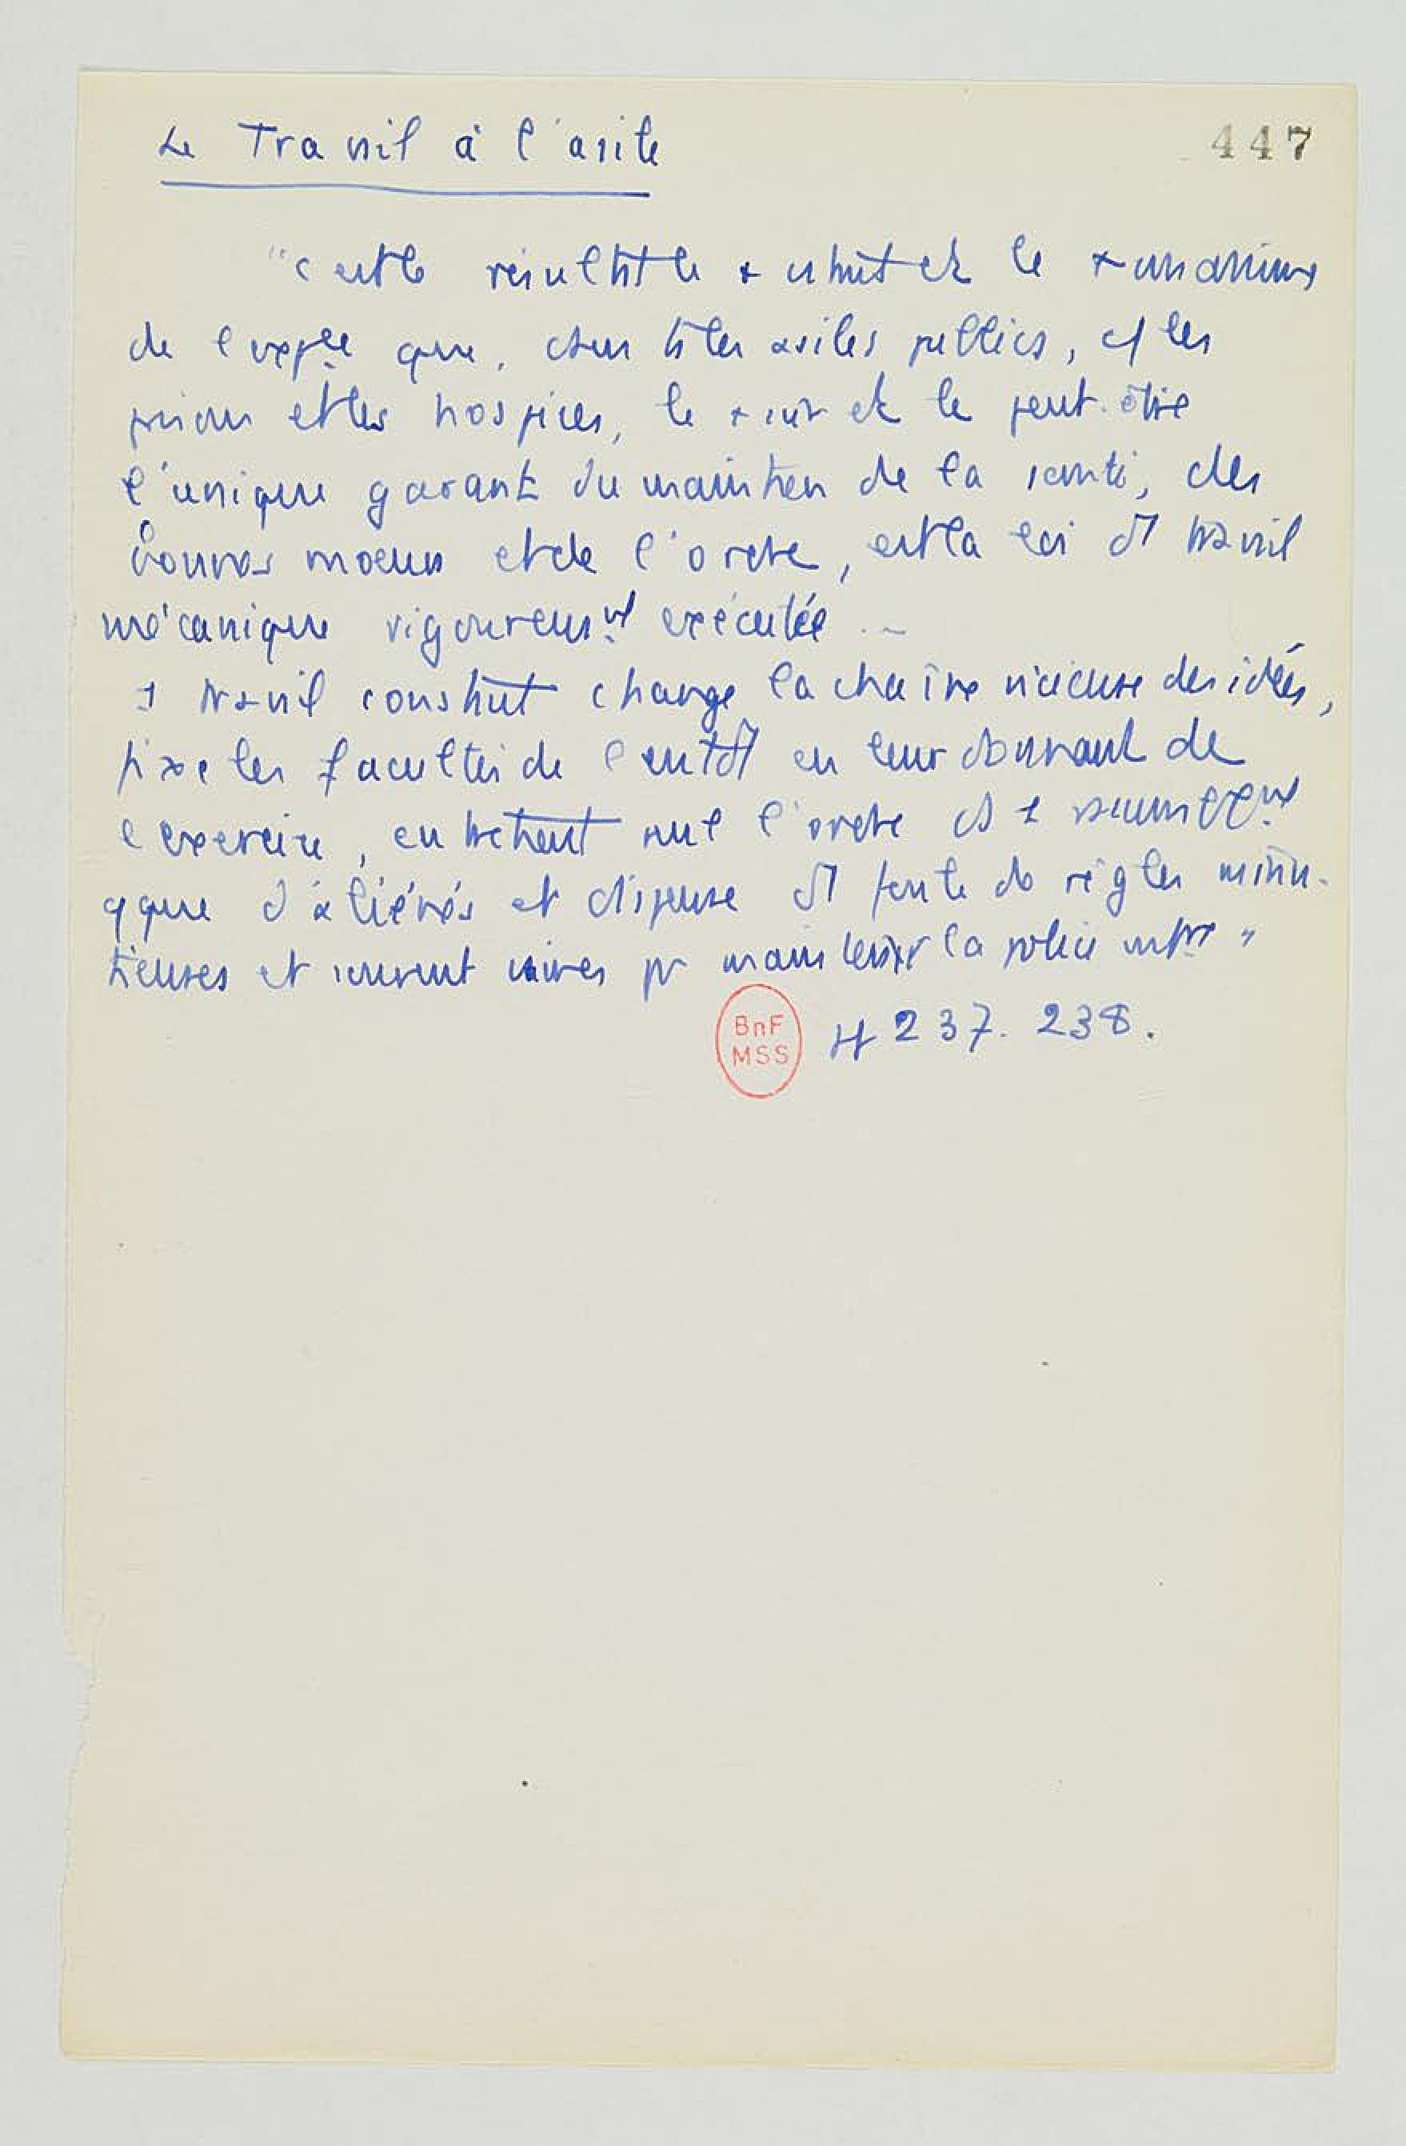 Le Travail à l'asile
447
"c'est le résultat le + constant et le + unanime
de l'expce que, dans ts les asiles publics, c/ les
prisons et les hospices, le + sûr et le peut-être
l'unique garant du maintien de la santé, des
bonnes moeurs et de l'ordre, est la loi d'1 travail
mécanique rigoureusmt exécutée ..
1 travail constant change la chaîne vicieuse des idées,
fixe les facultés de l'entdt en leur donnant de
l'exercice, entretient seul l'ordre ds 1 rassemblt
qque d'aliénés et dispense d'1 foule de règles minu-
tieuses et souvent vaines pr maintenir la police intre"
BnF
MSS
237. 238.